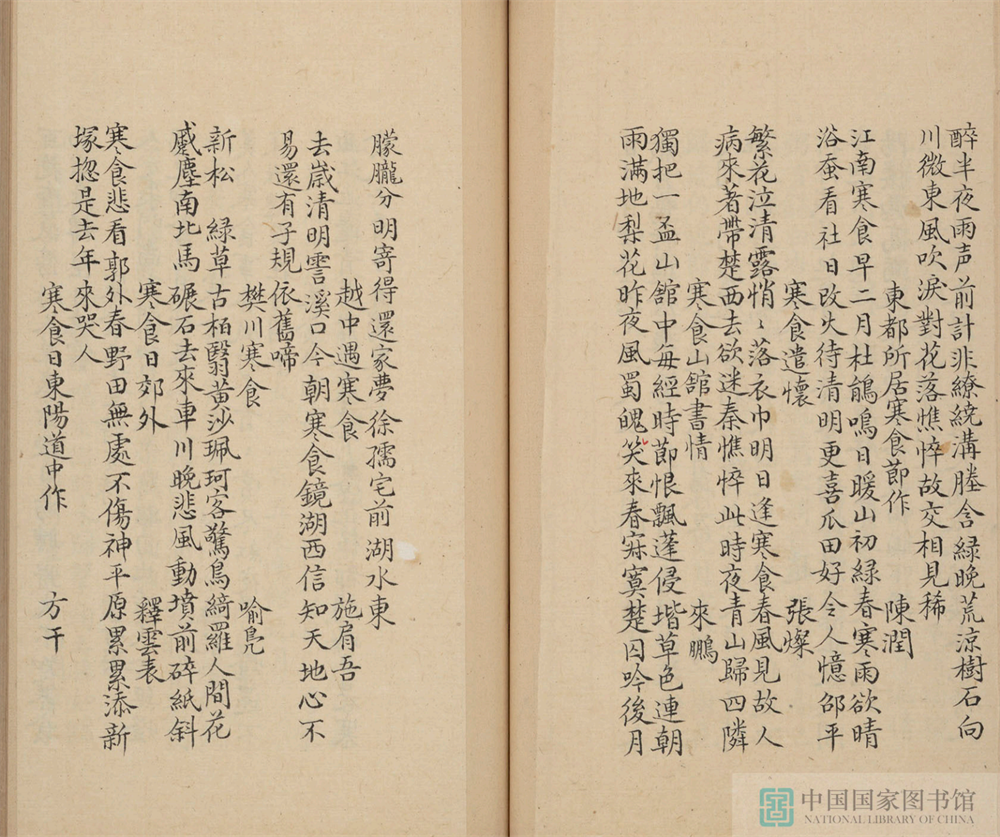 醉半夜雨声前計非繚繞溝塍含綠晚荒涼樹石向
川微東風吹淚對花落憔悴故交相見稀
東都所居寒食節作 陳潤
江南寒食早二月杜鵑鳴日暖山初綠春寒雨欲晴
浴蚕看社日改火待清明更喜瓜田好令人憶邵平
寒食遣懷 張燦
繁花泣清露悄〻落衣巾明日逢寒食春風見故人
病來著帶楚西去欲迷秦憔悴此時夜青山歸四隣
寒食山舘書情 來鵬
獨把一盃山舘中每經時節恨飄蓬侵堦草色連朝
雨满地梨花昨夜風蜀魄笑來春寂寞楚囚吟後月
朦朧分明寄得還家夢徐孺宅前湖水東
越中遇寒食 施肩吾
去歲清明霅溪口今朝寒食鏡湖西信知天地心不
易還有子規依舊啼
樊川寒食 喻鳧
新松 綠草古栢翳黄沙珮珂客驚鳥綺羅人間花
慼塵南北馬碾石去來車川晚悲風動墳前碎紙斜
寒食日郊外 釋雲表
寒食悲看郭外春野田無處不傷神平原累累添新
塚揔是去年來哭人
寒食日東陽道中作 方干
中国国家图书馆
NATIONAL LIBRARY OF CHINA